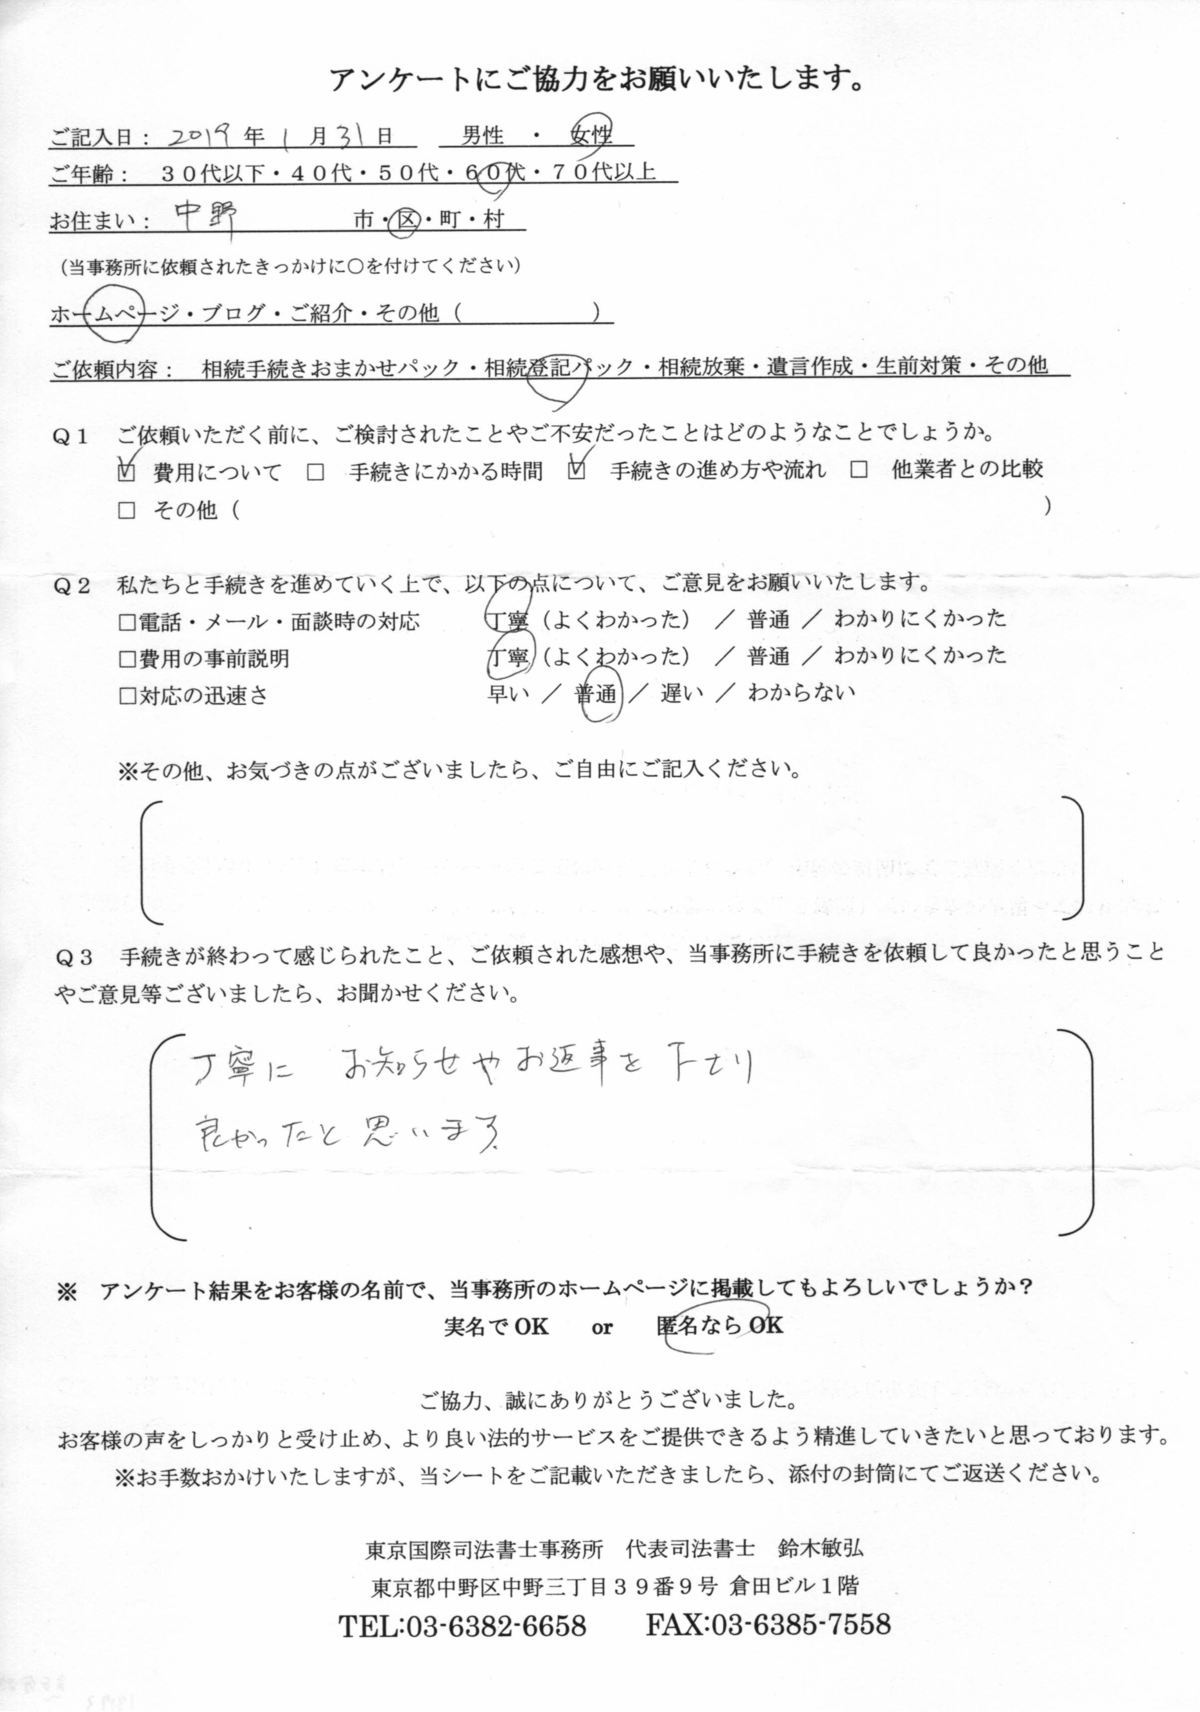 アンケートにご協力をお願いいたします。
ご記入日： 2019 年 1 月 31 日　男性 ・ 女性
ご年齢： ３０代以下・４０代・５０代・６０代・７０代以上
お住まい： 中野 市・区・町・村
（当事務所に依頼されたきっかけに○を付けてください）
ホームページ・ブログ・ご紹介・その他（　　　　　　）
ご依頼内容： 相続手続きおまかせパック・相続登記パック・相続放棄・遺言作成・生前対策・その他
Ｑ１　ご依頼いただく前に、ご検討されたことやご不安だったことはどのようなことでしょうか。
☑ 費用について □ 手続きにかかる時間 ☑ 手続きの進め方や流れ □ 他業者との比較
□ その他（　　　　　　）
Ｑ２　私たちと手続きを進めていく上で、以下の点について、ご意見をお願いいたします。
□電話・メール・面談時の対応　丁寧（よくわかった） ／ 普通 ／ わかりにくかった
□費用の事前説明　丁寧（よくわかった） ／ 普通 ／ わかりにくかった
□対応の迅速さ　早い ／ 普通 ／ 遅い ／ わからない
※その他、お気づきの点がございましたら、ご自由にご記入ください。
Ｑ３　手続きが終わって感じられたこと、ご依頼された感想や、当事務所に手続きを依頼して良かったと思うこと
やご意見等ございましたら、お聞かせください。
丁寧に お知らせやお返事を下さり
良かったと思います。
※　アンケート結果をお客様の名前で、当事務所のホームページに掲載してもよろしいでしょうか？
実名で OK　or　匿名なら OK
ご協力、誠にありがとうございました。
お客様の声をしっかりと受け止め、より良い法的サービスをご提供できるよう精進していきたいと思っております。
※お手数おかけいたしますが、当シートをご記載いただきましたら、添付の封筒にてご返送ください。
東京国際司法書士事務所　代表司法書士　鈴木敏弘
東京都中野区中野三丁目３９番９号 倉田ビル１階
TEL:03-6382-6658　FAX:03-6385-7558